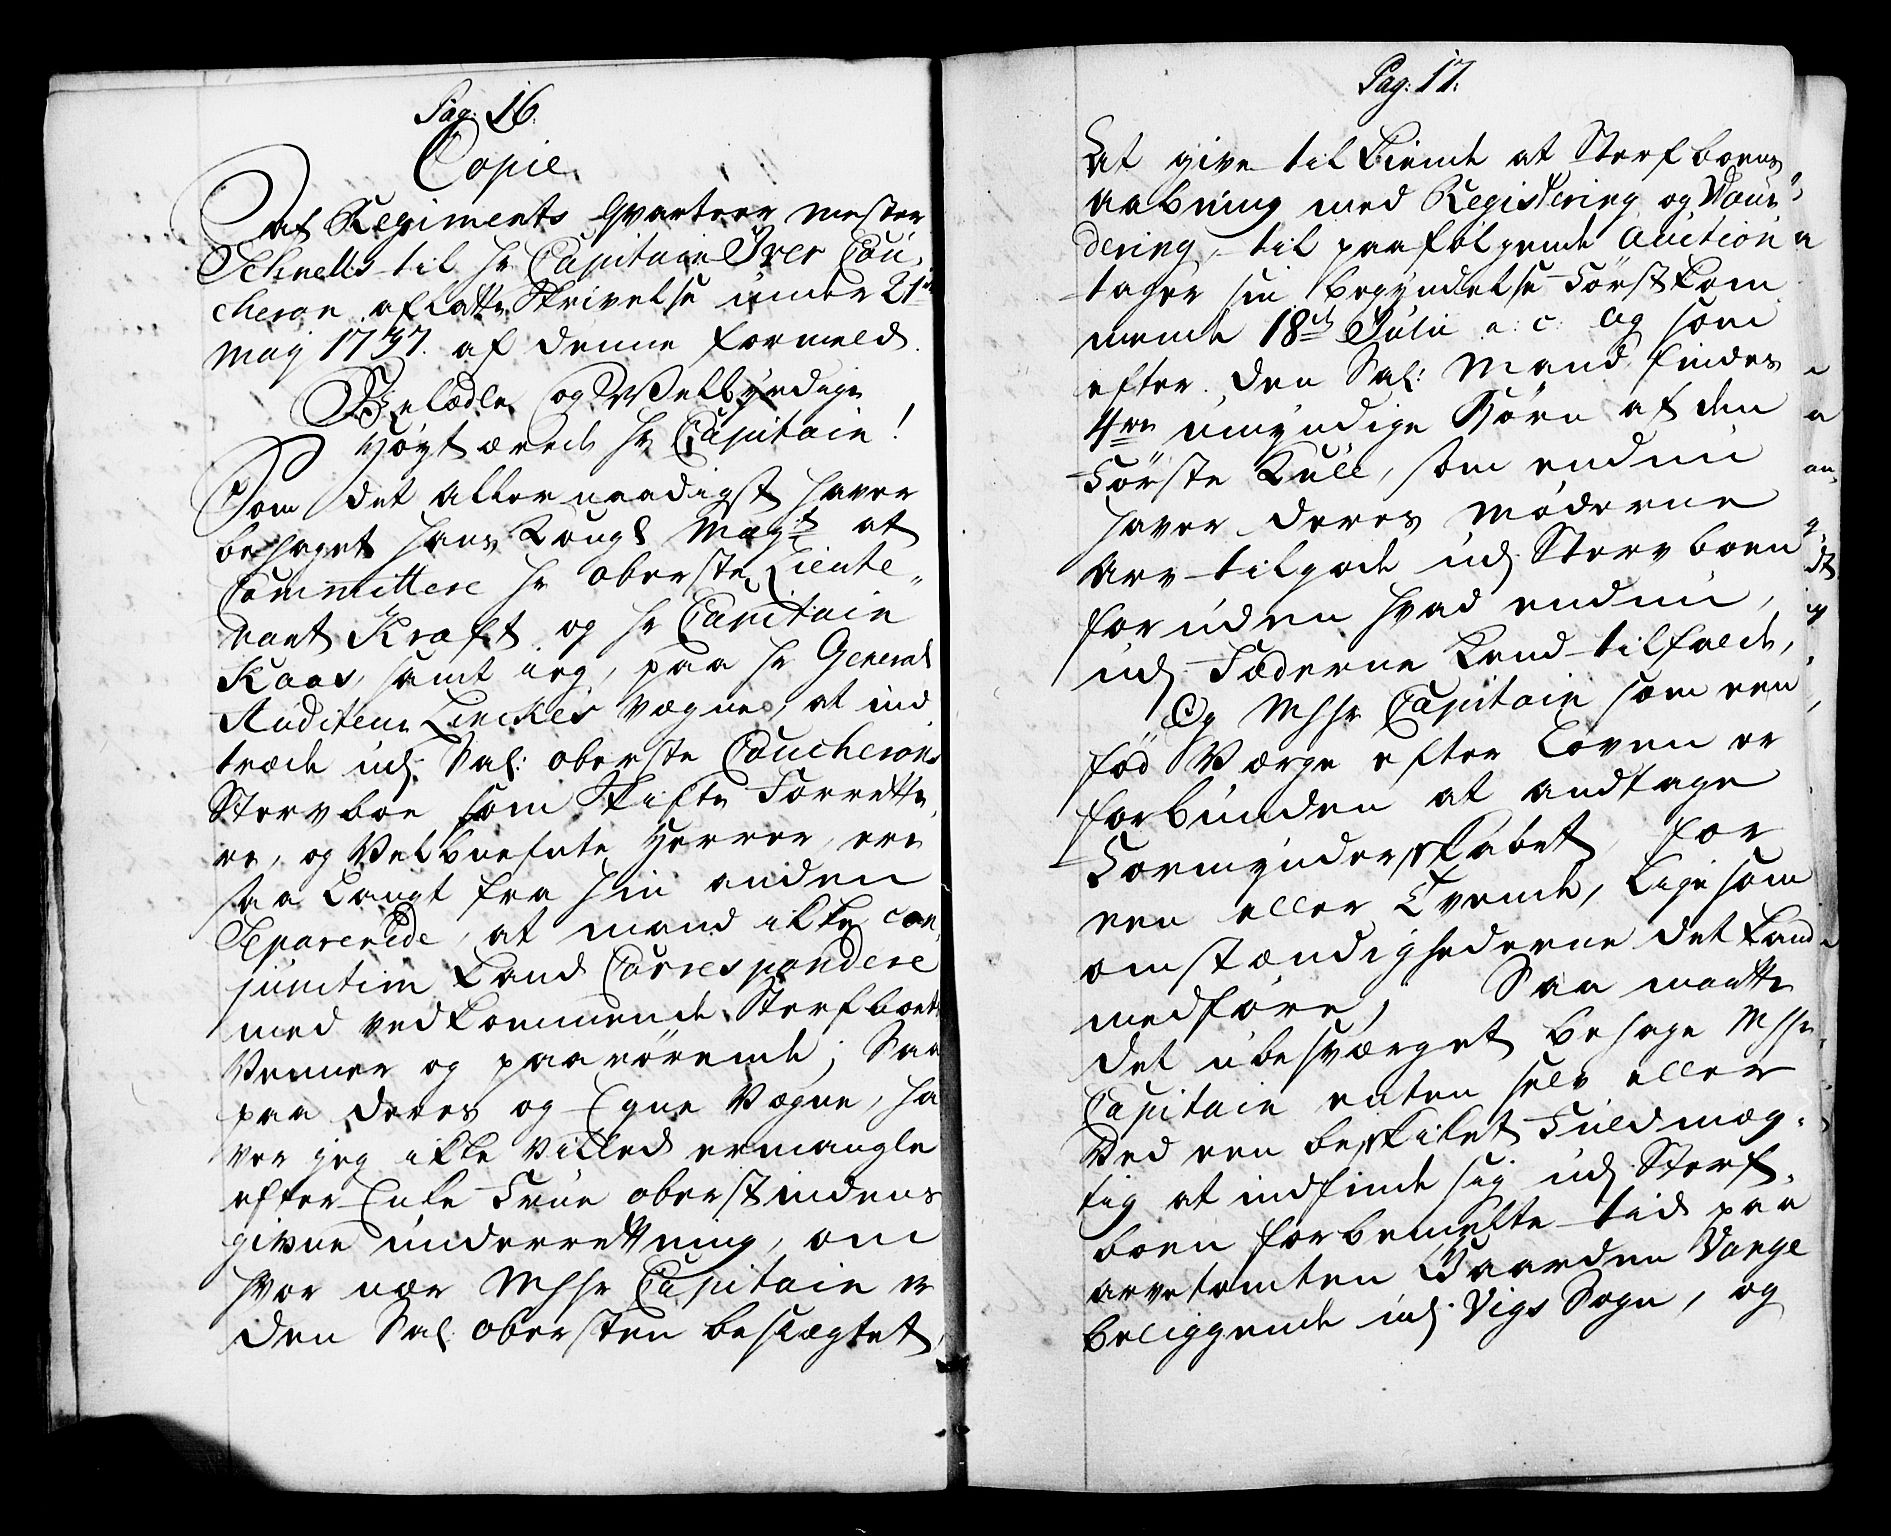 Pag: 16.
Copie
af Regiments Qvarteer mester
Schnells til Hr Capitain Iver Cou,
cheron aflatte Skrivelse under 21de
Maij 1737. af denne formeld.
Velædle og Velbyrdige
Høyt ærede Hr Capitain!
Som det aller naadigst haver
behaget Hans Kongl Mayts at
Committere Hr oberste Lieute„
nant Kraft og Hr Capitain
Kaas, samt ieg, paa Hr General
Auditeur Linckes Vægne, at ind
træde udj Sal: oberste Coucherons
Stervboe som Skifte Forrette,
re, og Velbnefnte Herrer, ere
saa Langt fra hin anden
Separerede, at mand ikke con,
junctim kand Correspondere
med vedkommende Sterfboets
Venner og paarørende; Saa
paa deres og Egne Vægne, ha
ver jeg ikke villed ermangle
efter Enke Frue oberstindens
givne underrettning, om
hvor nær MhHr Capitain er
den Sal: obersten beslægtet,
Pag: 17.
At give tilkiende at Sterfboens
aabning med Registering og Vaur„
dering, til paafølgende Auction
tager sin begyndelse først kom
mende 18de Julii a: c: Og som
efter den Sal: Mand findes
4re umyndige Børn af den
Første Kuld, som endnu
haver deres møderne
Arv tilgode udj Stervboen
foruden hvad endnu,
udj Fæderne kand tilfalde,
Og MhHr Capitain som een
fød Værge efter Loven er
forbunden at andtage
Formynderskabet, for
een eller Tvende, Ligesom
omstændighederne det kand
medføre; Saa maatte
det ubesværget behage MhHr
Capitain enten selv eller
Ved een beskilet Fuldmæg,
tig at indfinde sig udj Sterf,
boen forbemelte tid paa
arvetomten Gaarden Vange
beliggende udj Vigs Sogn, og